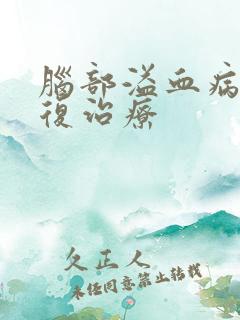 腦部溢血病
復治療
欠正人
未經同意禁止转載